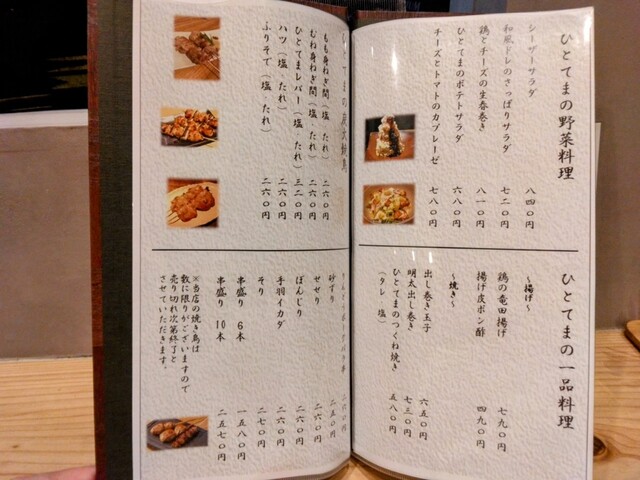 ひとてまの野菜料理
シーザーサラダ 八四〇円
和風ドレのさっぱりサラダ 七二〇円
鶏とチーズの生春巻き 八一〇円
ひとてまのポテトサラダ 六八〇円
チーズとトマトのカプレーゼ 七八〇円
ひとてまの一品料理
~揚げ~
鶏の竜田揚げ 七九〇円
揚げ皮ポン酢 四九〇円
~焼き~
出し巻き玉子 六五〇円
明太出し巻き 七三〇円
ひとてまのつくね焼き 五八〇円
(タレ 塩)
もも身ねぎ間(塩・たれ) 二六〇円
むね身ねぎ間(塩・たれ) 二六〇円
ひとてまレバー(塩・たれ) 三二〇円
ハツ(塩・たれ) 二六〇円
ふりそで(塩・たれ) 二六〇円
二六〇円
砂ずり 二五〇円
せせり 二六〇円
ぼんじり 二六〇円
手羽イカダ 二六〇円
そり 二七〇円
串盛り 6本 一五八〇円
串盛り 10本 二五七〇円
※当店の焼き鳥は
数に限りがございますので
売り切れ次第終了と
させていただきます。